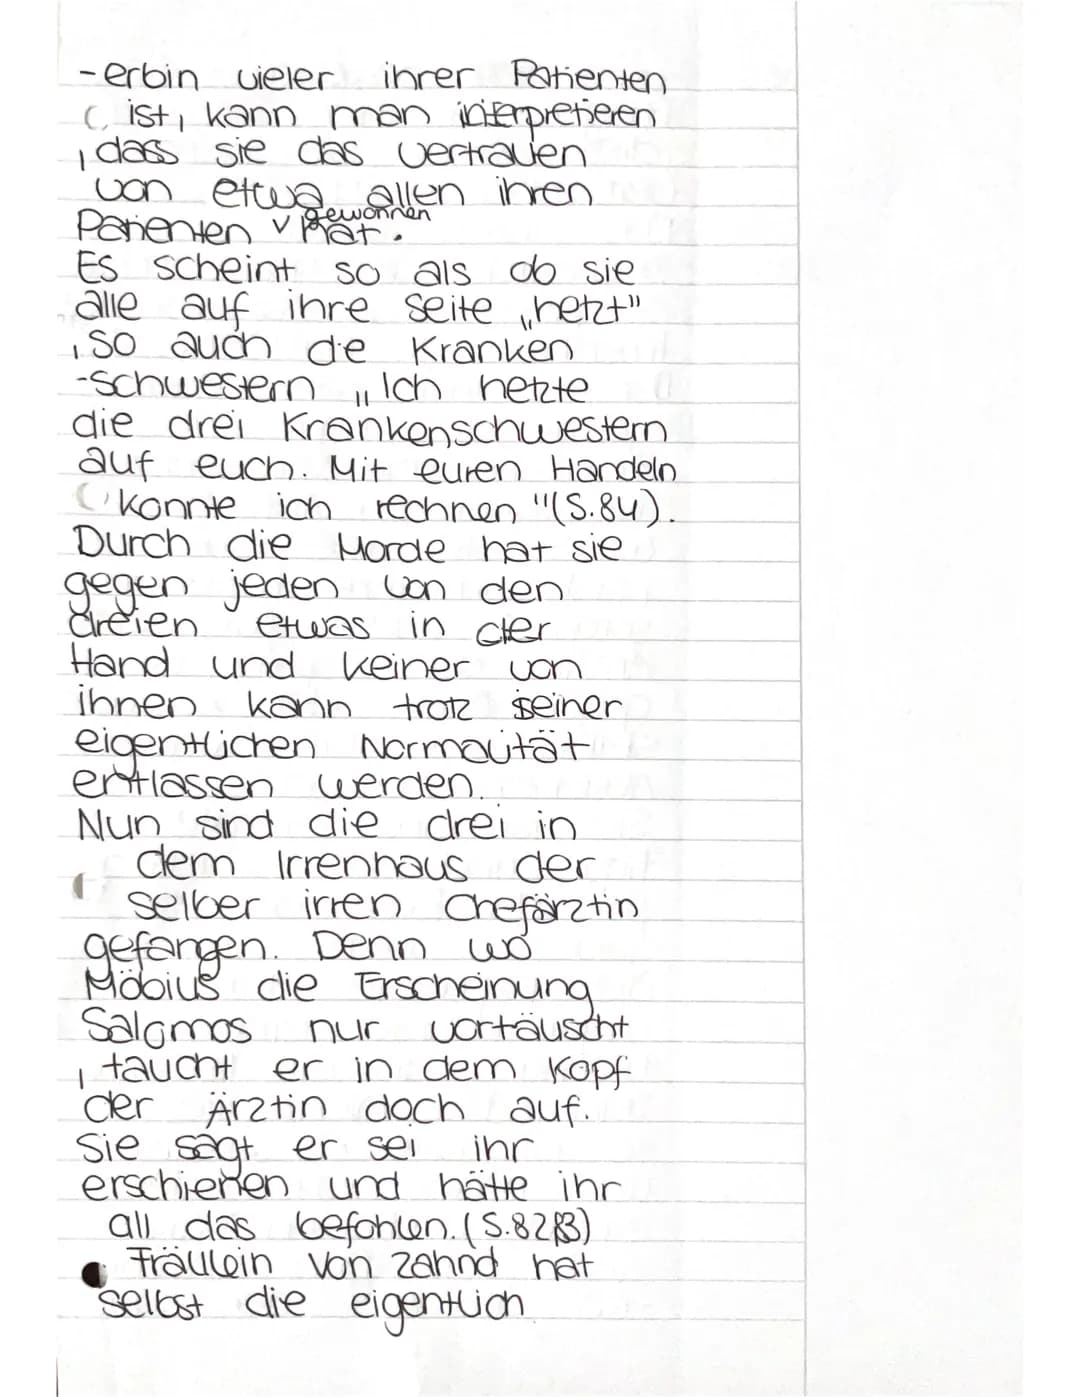 -erbin vieler ihrer Patienten
ist, kann man interpretieren
, dass sie das Vertrauen
von etwa allen ihren
gewonnen
Patienten v hat.
Es scheint so als ob sie
alle auf ihre Seite „hetzt"
, so auch die Kranken
-schwestern „Ich hetzte
die drei Krankenschwestern
auf euch. Mit euren Handeln
konnte ich rechnen "(S.84).
Durch die Morde hat sie
gegen jeden von den
dreien etwas in der
Hand und keiner von
ihnen kann trotz seiner
eigentlichen Normalität
entlassen werden.
Nun sind die drei in
dem Irrenhaus der
selber irren Chefärztin
gefangen. Denn wo
Möbius die Erscheinung
Salomos nur vortäuscht
, taucht er in dem Kopf
der Ärztin doch auf.
Sie sagt er sei ihr
erschienen und hätte ihr
all das befohlen. (S.82/83)
Fräulein von Zahnd hat
selbst die eigentlich